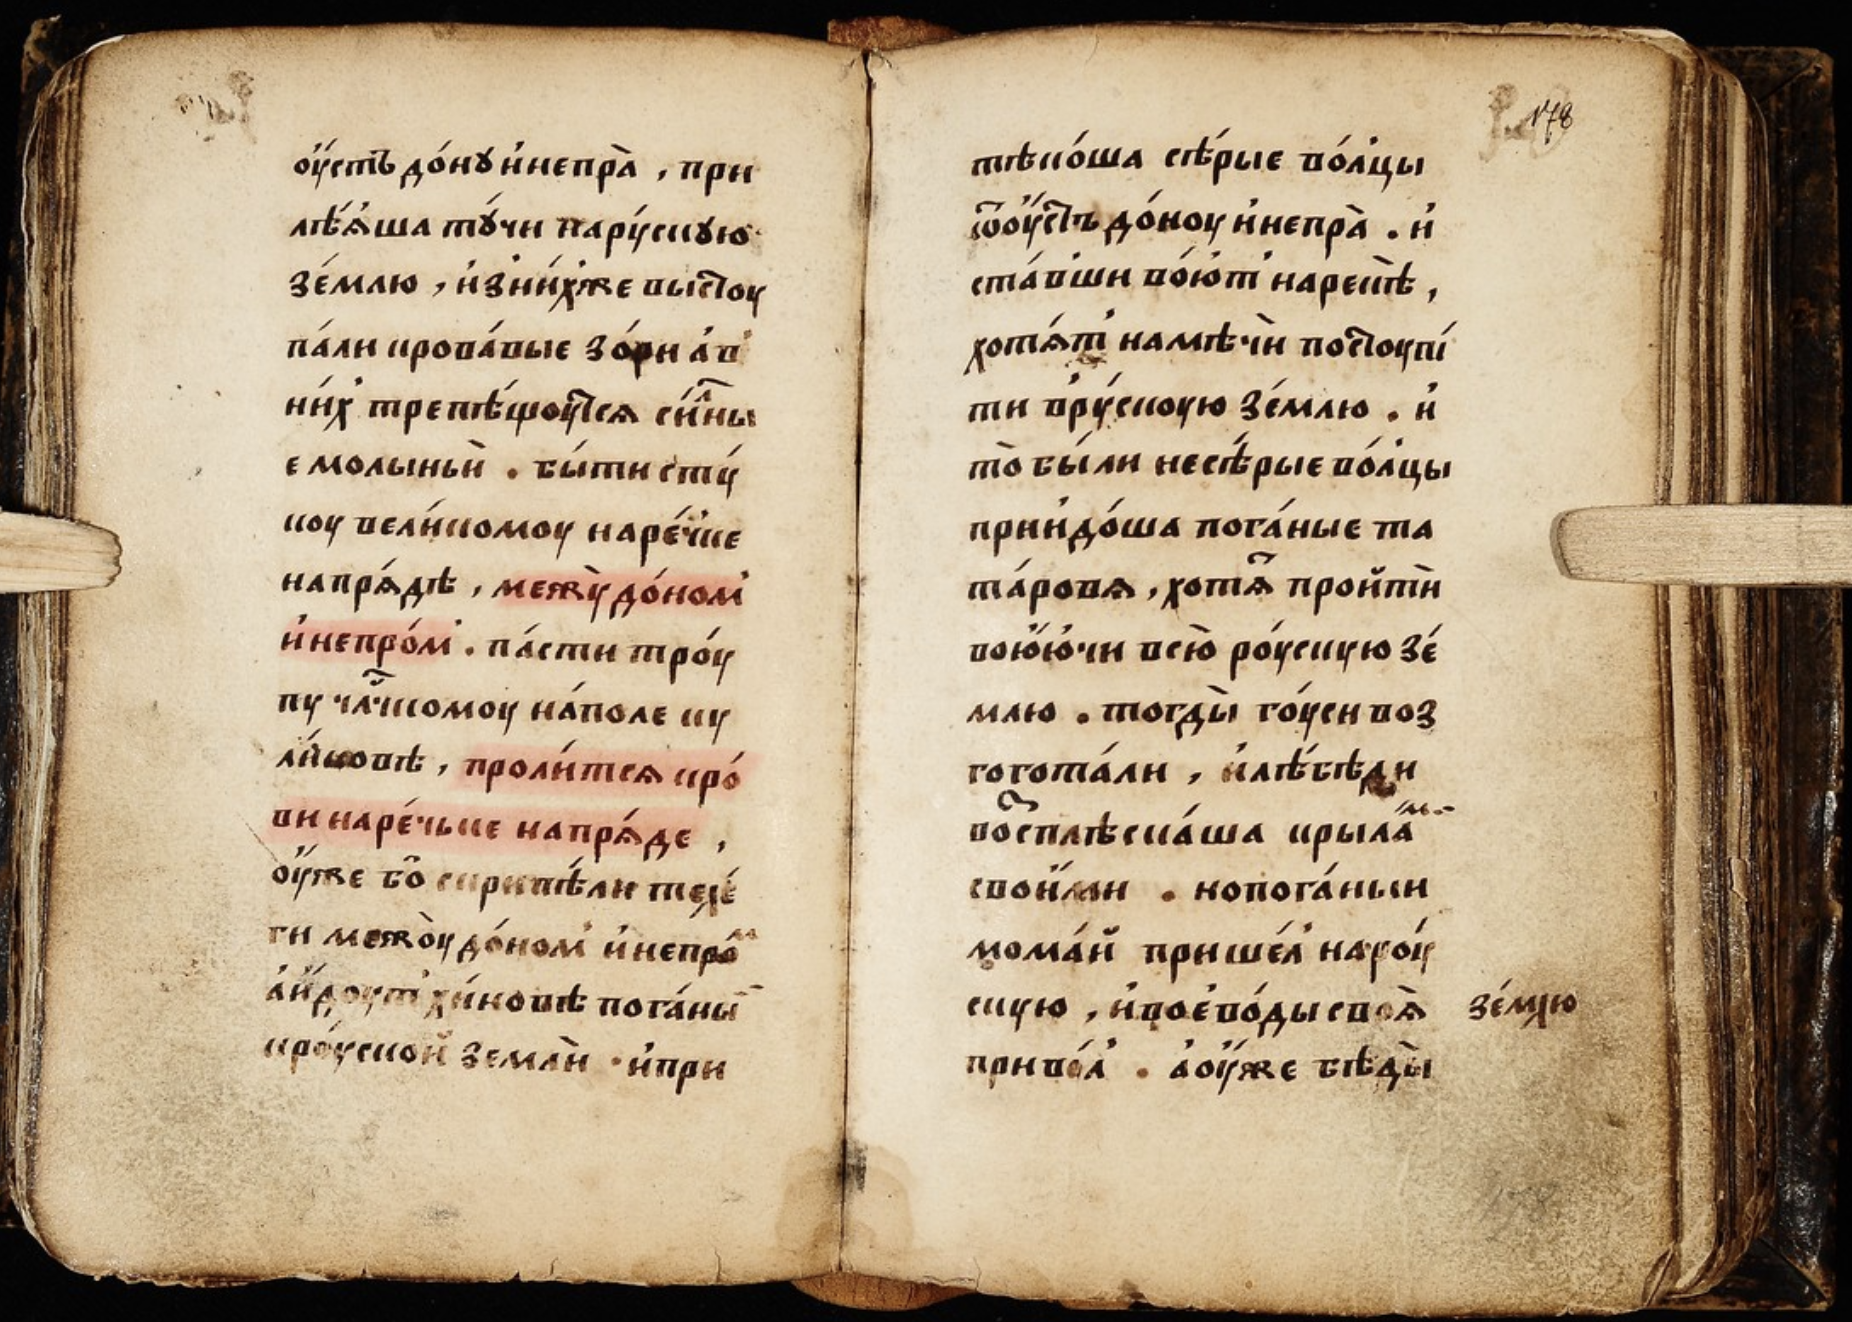 оу҆́стъ до́нꙋ и҆непрѧ̀ , при
лѣѧ́ша тꙋ́чи нарꙋ́скую
зе́млю , и҆з̾ни́хже выⷭ҇тоу
па́ли крова́вые зо́ри а҆ в̾
ни́х̾ трепѣ́щоуⷮсѧ си́ⷧ҇ны
е молыньѝ . бы́ти стꙋ́
коу вели́комоу наре́чке
напрѧ́дѣ , межꙋ̀ до́ном̾
и҆непро́м̾ . па́сти тро́у
пꙋ чл҃ч̾комоу на́поле кꙋ
ли́ковѣ , проли́тсѧ кро́
ви наре́чьке напрѧ́де ,
оу҆́же бо̑ скрипѣ́ли теле́
ги межо̀у до́ном̾ и҆непро́ⷨ
а҆и҆́доут̾ хи́новѣ пога́ныⷷ
кро́ускои̑ землѝ . и҆при
тѣко́ша сѣ́рые во́л̾цы
ѿоу҆́ⷭ҇тъ до́ноу и҆непрѧ̀ . и҆
ста́в̾ши во́ют̾ нарекѣ̀ ,
хотѧ́т̾ намѣчѝ поⷭ҇тоупи́
ти врꙋ́скоую зе́млю . и҆
то̀ бы́ли несѣ́рые во́л̾цы
прии҆до́ша пога́ные та
та́ровѧ , хотѧ́ⷮ проитѝ
вою́ючи всю̀ ро́ускую зе́
млю . тогды̀ го́уси воз
гогота́ли , и҆лѣ́бѣди
воⷭ҇плѣска́ша крыла́ⷨ
свои́ми . нопога́ныи
мома́й прише́л̾ наро́у
скую , и҆воево́ды своѧ̀ зе́млю
приве́л̾ . а҆оу҆́же бѣды̀
178